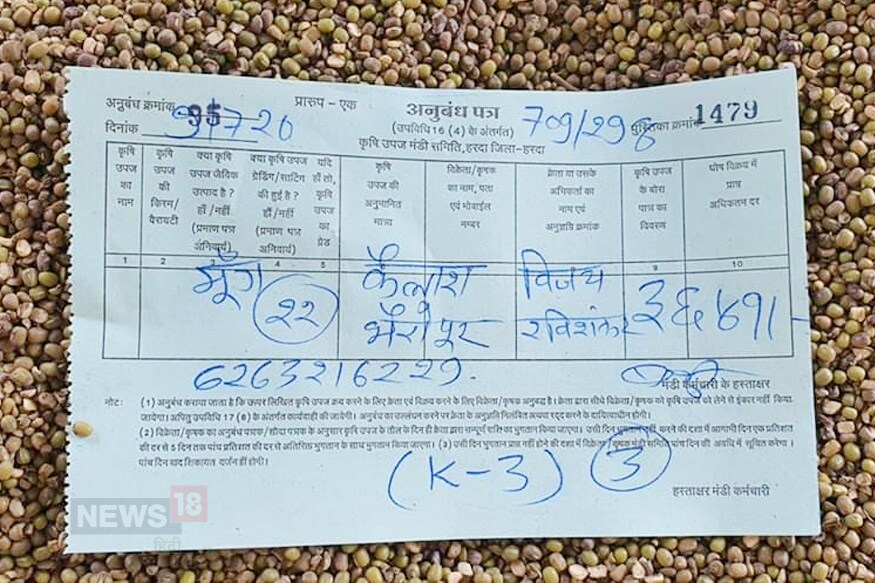 अनुबंध क्रमांक 95 प्रारूप - एक अनुबंध पत्र 709/298 पुस्तिका क्रमांक 1479
दिनांक 9/7/20 (उपविधि 16 (4) के अंतर्गत)
कृषि उपज मंडी समिति, हरदा जिला-हरदा
कृषि उपज का नाम
कृषि उपज की किस्म/वैरायटी
क्या कृषि उपज जैविक उत्पाद है ? हाँ / नहीं (प्रमाण पत्र अनिवार्य)
क्या कृषि उपज ग्रेडिंग/साटिंग की हुई है ? हाँ / नहीं (प्रमाण पत्र अनिवार्य)
यदि हाँ तो, कृषि उपज का ग्रेड
कृषि उपज की अनुमानित मात्रा
विक्रेता/कृषक का नाम, पता एवं मोबाईल नम्बर
क्रेता या उसके अभिकर्ता का नाम एवं अनुज्ञप्ति क्रमांक
कृषि उपज के बोरा पात्र का विवरण
घोष विक्रय में प्राप्त अधिकतम दर
1 2 3 4 5 9 10
मूँग कैलाश विजय
22 भैरोपुर रविशंकर ३६४१/-
6263216229
मंडी कर्मचारी के हस्ताक्षर
नोट : (1) अनुबंध कराया जाता है कि ऊपर लिखित कृषि उपज क्रय करने के लिए क्रेता एवं विक्रय करने के लिए विक्रेता/कृषक अनुबद्ध है। क्रेता द्वारा सीधे विक्रेता/कृषक को कृषि उपज को लेने से इंकार नहीं किया
जायेगा। अपितु उपविधि 17 (6) के अंतर्गत कार्यवाही की जायेगी। अनुबंध का उल्लंघन करने पर क्रेता के अनुज्ञप्ति निलंबित अथवा रद्द करने के दायित्वाधीन होगी।
(2) विक्रेता/कृषक का अनुबंध पत्रक/सौदा पत्रक के अनुसार कृषि उपज के तौल के दिन ही क्रेता द्वारा सम्पूर्ण राशि का भुगतान किया जाएगा। उसी दिन भुगतान नहीं करने की दशा में आगामी दिन एक प्रतिशत
की दर से 5 दिन तक पांच प्रतिशत की दर से अतिरिक्त भुगतान के साथ भुगतान किया जाएगा। (3) उसी दिन भुगतान प्राप्त नहीं होने की दशा में विक्रेता/कृषक मंडी समिति पांच दिन की अवधि में सूचित करेगा।
पांच दिन बाद शिकायत दर्ज नहीं होगी।
(K-3) 3
हस्ताक्षर मंडी कर्मचारी
NEWS 18
हिंदी